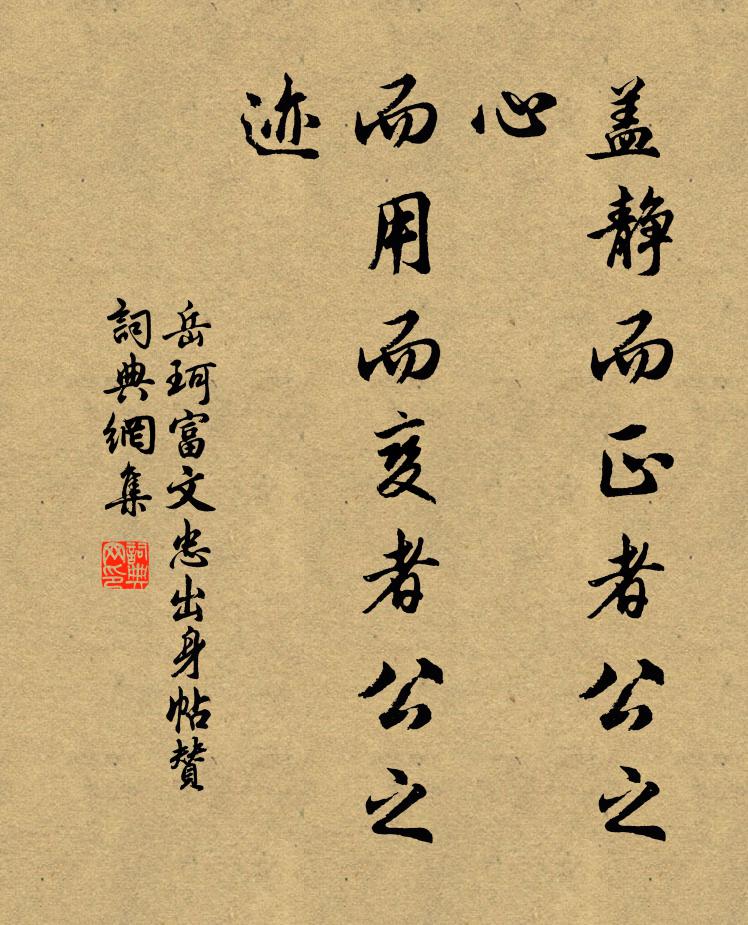 盖静而正者公之
心
而用而变者公之
迹
岳珂富文忠出身帖賛
詞典網集
詞典
网印